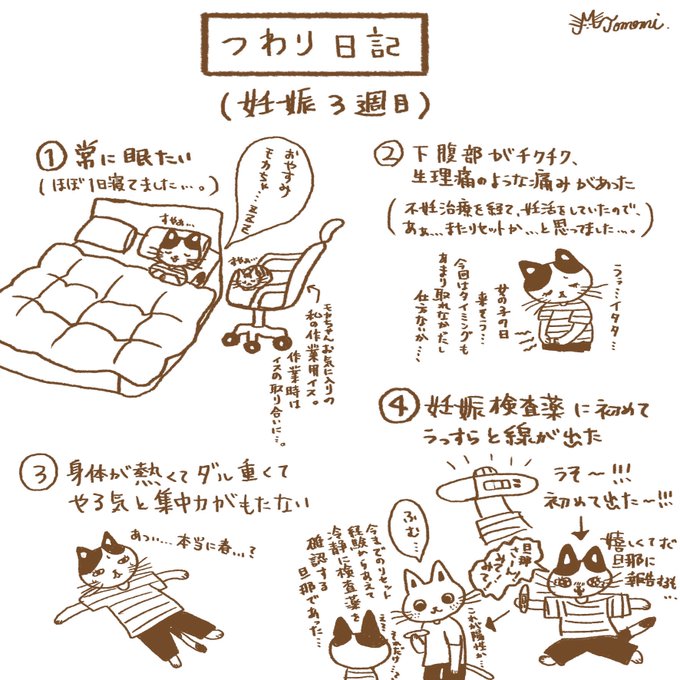 Tomomi.
つわり日記
(妊娠3週目)
① 常に眠たい
(ほぼ1日寝てました…。)
すやぁ…
おやすみ
モカちゃ…zzz
すやぁ…
モカちゃんお気に入りの
私の作業用イス。
作業時は
イスの取り合いに…。
② 下腹部がチクチク、
生理痛のような痛みがあった
(不妊治療を経て、妊活をしていたので、
あぁ…またリセットか…と思ってました…。)
うっ…イタタ…
女の子の日
来そう…
今回はタイミングも
あまり取れなかったし
仕方ないか…
③ 身体が熱くてダル重くて
やる気と集中力がもたない
あつい…本当に春…って
④ 妊娠検査薬に初めて
うっすらと線が出た
うそ〜!!!
初めて出た〜!!!
嬉しくてだ
旦那に
報告するも…
旦那
さーん!
みて!
みて!
ふむ…
これが陽性か…
え?それだけ…?
今までのリセット
経験からあえて
冷静に検査薬を
確認する
旦那であった…